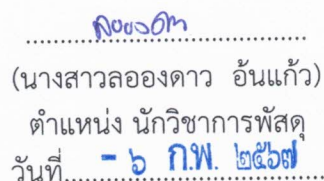 ลอองดาว
(นางสาวลอองดาว อ้นแก้ว)
ตำแหน่ง นักวิชาการพัสดุ
วันที่ - ๖ ก.พ. ๒๕๖๗